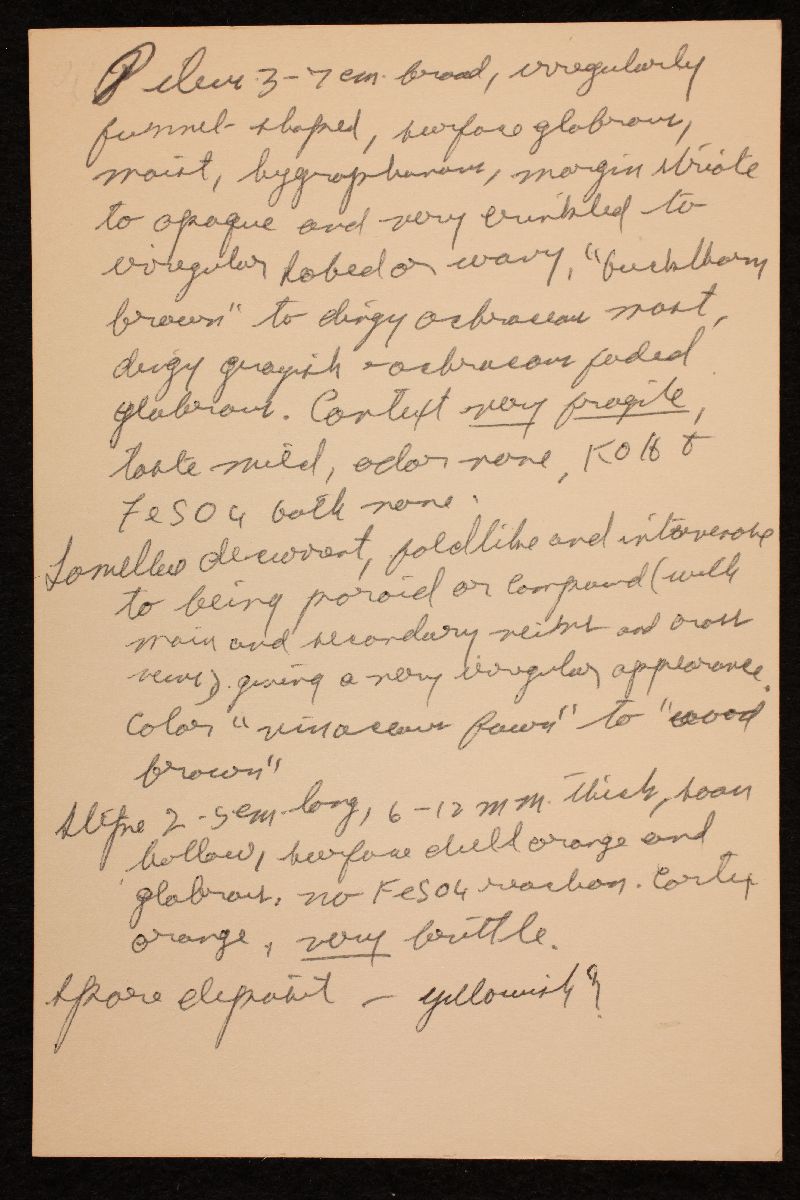 Pileus 3-7 cm. broad, irregularly
funnel-shaped, surface glabrous,
moist, hygrophanous, margin striate
to opaque and very crinkled to
irregular lobed or wavy, "buckthorn
brown" to dingy ochraceous moist,
dingy grayish-ochraceous faded
glabrous. Context very fragile,
taste mild, odor none, KOH &
FeSO4 both none.
Lamellae decurrent, foldlike and intervenose
to being poroid or compound (with
main and secondary veins and cross
veins). giving a very irregular appearance.
Color "vinaceous fawn" to "wood
brown"
Stipe 2-5 cm. long, 6-12 mm. thick, soon
hollow, surface dull orange and
glabrous. no FeSO4 reaction. Cortex
orange, very brittle.
Spore deposit - yellowish?